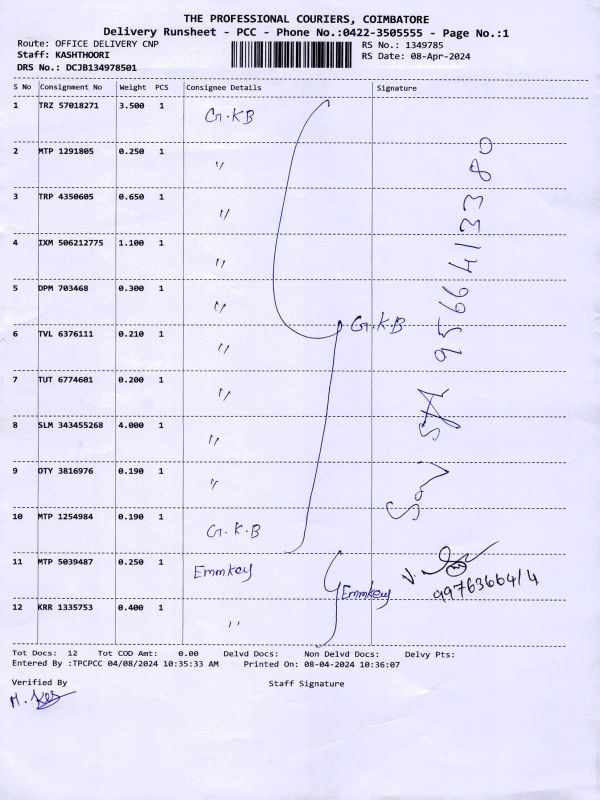 THE PROFESSIONAL COURIERS, COIMBATORE
Delivery Runsheet - PCC - Phone No.:0422-3505555 - Page No.:1
Route: OFFICE DELIVERY CNP RS No.: 1349785
Staff: KASHTHOORI RS Date: 08-Apr-2024
DRS No.: DCJB134978501
S No Consignment No Weight PCS Consignee Details Signature
1 TRZ 57018271 3.500 1 G.KB
2 MTP 1291805 0.250 1 "
3 TRP 4350605 0.650 1 "
4 IXM 506212775 1.100 1 "
5 DPM 703468 0.300 1 "
G.K.B
6 TVL 6376111 0.210 1 "
7 TUT 6774601 0.200 1 "
8 SLM 343455268 4.000 1 "
9 OTY 3816976 0.190 1 "
10 MTP 1254984 0.190 1 G.K.B
9566413380
11 MTP 5039487 0.250 1 Emmkey
Emmkey
12 KRR 1335753 0.400 1 "
Tot Docs: 12 Tot COD Amt: 0.00 Delvd Docs: Non Delvd Docs: Delvy Pts:
Entered By :TPCPCC 04/08/2024 10:35:33 AM Printed On: 08-04-2024 10:36:07
Verified By Staff Signature